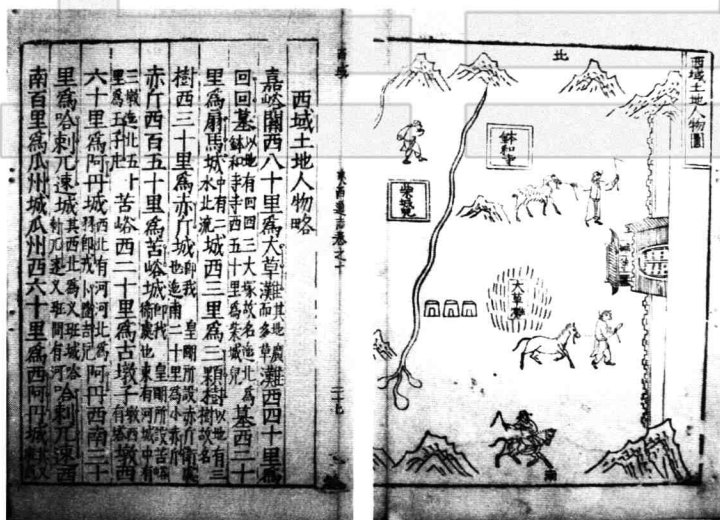 西域土地人物圖
北
鉢和寺
柴城兒
大草灘
南
西域土地人物略
嘉峪關西八十里爲大草灘其地廣而多草灘西四十里爲
回回墓以地有回回三大塚故名迤北爲鉢和寺寺西五十里爲柴城兒墓西二十
里爲扇馬城中有二水北流城西三里爲三顆樹以地有三樹故名
樹西三十里爲赤斤城即我皇明所設赤斤衛處也迤南二十里爲小赤斤
赤斤西百五十里爲苦峪城即我皇明所設苦峪衛處也東有河城中有
三墩迤北五十里爲王子庄苦峪西二十里爲古墩子墩西有塔墩西
六十里爲阿丹城西北有河河北爲阿丹西南三十
里爲哈剌兀速城其西北爲义班城哈剌兀速义班間有河哈剌兀速西
南百里爲瓜州城瓜州西六十里爲西阿丹城